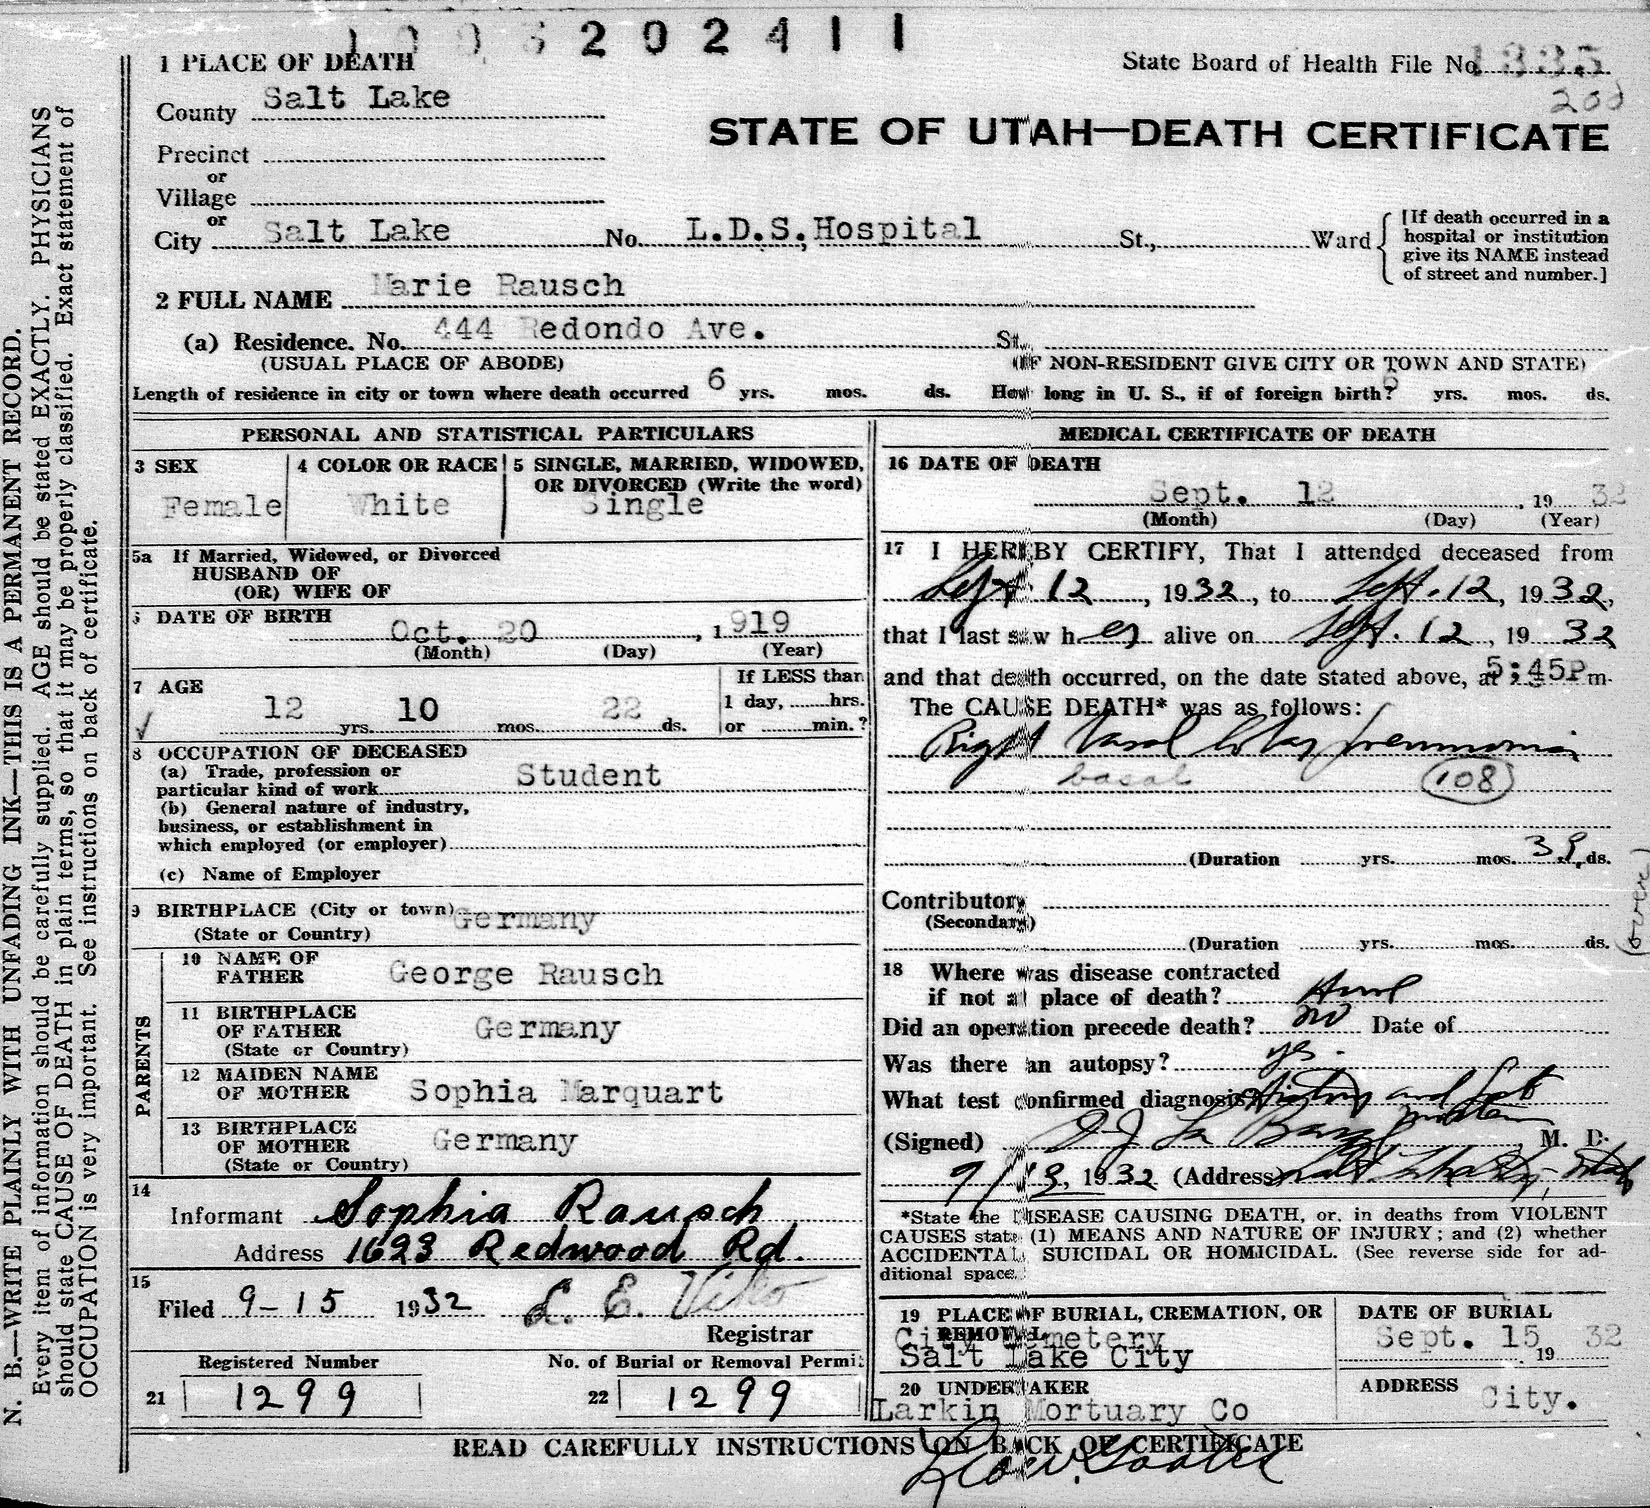 202411
1 PLACE OF DEATH
State Board of Health File No. 1335
200
County Salt Lake
STATE OF UTAH—DEATH CERTIFICATE
Precinct
or
Village
or
City Salt Lake No. L.D.S. Hospital St., Ward
[If death occurred in a hospital or institution give its NAME instead of street and number.]
2 FULL NAME Marie Rausch
(a) Residence. No. 444 Redondo Ave. St.
(USUAL PLACE OF ABODE) (IF NON-RESIDENT GIVE CITY OR TOWN AND STATE)
Length of residence in city or town where death occurred 6 yrs. mos. ds. How long in U. S., if of foreign birth? 6 yrs. mos. ds.
PERSONAL AND STATISTICAL PARTICULARS
3 SEX
Female
4 COLOR OR RACE
White
5 SINGLE, MARRIED, WIDOWED,
OR DIVORCED (Write the word)
Single
5a If Married, Widowed, or Divorced
HUSBAND OF
(OR) WIFE OF
6 DATE OF BIRTH
Oct. 20, 1919
(Month) (Day) (Year)
7 AGE
12 yrs. 10 mos. 22 ds.
If LESS than
1 day, hrs.
or min.?
8 OCCUPATION OF DECEASED
(a) Trade, profession or
particular kind of work Student
(b) General nature of industry,
business, or establishment in
which employed (or employer)
(c) Name of Employer
9 BIRTHPLACE (City or town) Germany
(State or Country)
PARENTS
10 NAME OF
FATHER George Rausch
11 BIRTHPLACE
OF FATHER Germany
(State or Country)
12 MAIDEN NAME
OF MOTHER Sophia Marquart
13 BIRTHPLACE
OF MOTHER Germany
(State or Country)
14
Informant Sophia Rausch
Address 1623 Redwood Rd.
15
Filed 9-15 1932 L. E. Viko
Registrar
Registered Number
21 1299
No. of Burial or Removal Permit
22 1299
MEDICAL CERTIFICATE OF DEATH
16 DATE OF DEATH
Sept. 12, 1932
(Month) (Day) (Year)
17 I HEREBY CERTIFY, That I attended deceased from
Sept 12, 1932, to Sept. 12, 1932,
that I last saw her alive on Sept. 12, 1932
and that death occurred, on the date stated above, at 5:45P m.
The CAUSE DEATH* was as follows:
Right basal lobar pneumonia
basal 108
(Duration yrs. mos. ds.
(over)
Contributory
(Secondary)
(Duration yrs. mos. ds.
18 Where was disease contracted
if not at place of death? Home
Did an operation precede death? no Date of
Was there an autopsy? yes.
What test confirmed diagnosis? History and
(Signed) , M. D.
9/13, 1932 (Address) Salt Lake City, Utah
*State the DISEASE CAUSING DEATH, or, in deaths from VIOLENT
CAUSES state (1) MEANS AND NATURE OF INJURY; and (2) whether
ACCIDENTAL, SUICIDAL OR HOMICIDAL. (See reverse side for ad-
ditional space.
19 PLACE OF BURIAL, CREMATION, OR
REMOVAL
City Cemetery
Salt Lake City
DATE OF BURIAL
Sept. 15 1932
20 UNDERTAKER
Larkin Mortuary Co
ADDRESS City.
READ CAREFULLY INSTRUCTIONS ON BACK OF CERTIFICATE
N. B.—WRITE PLAINLY WITH UNFADING INK—THIS IS A PERMANENT RECORD.
Every item of information should be carefully supplied. AGE should be stated EXACTLY. PHYSICIANS
should state CAUSE OF DEATH in plain terms, so that it may be properly classified. Exact statement of
OCCUPATION is very important. See instructions on back of certificate.